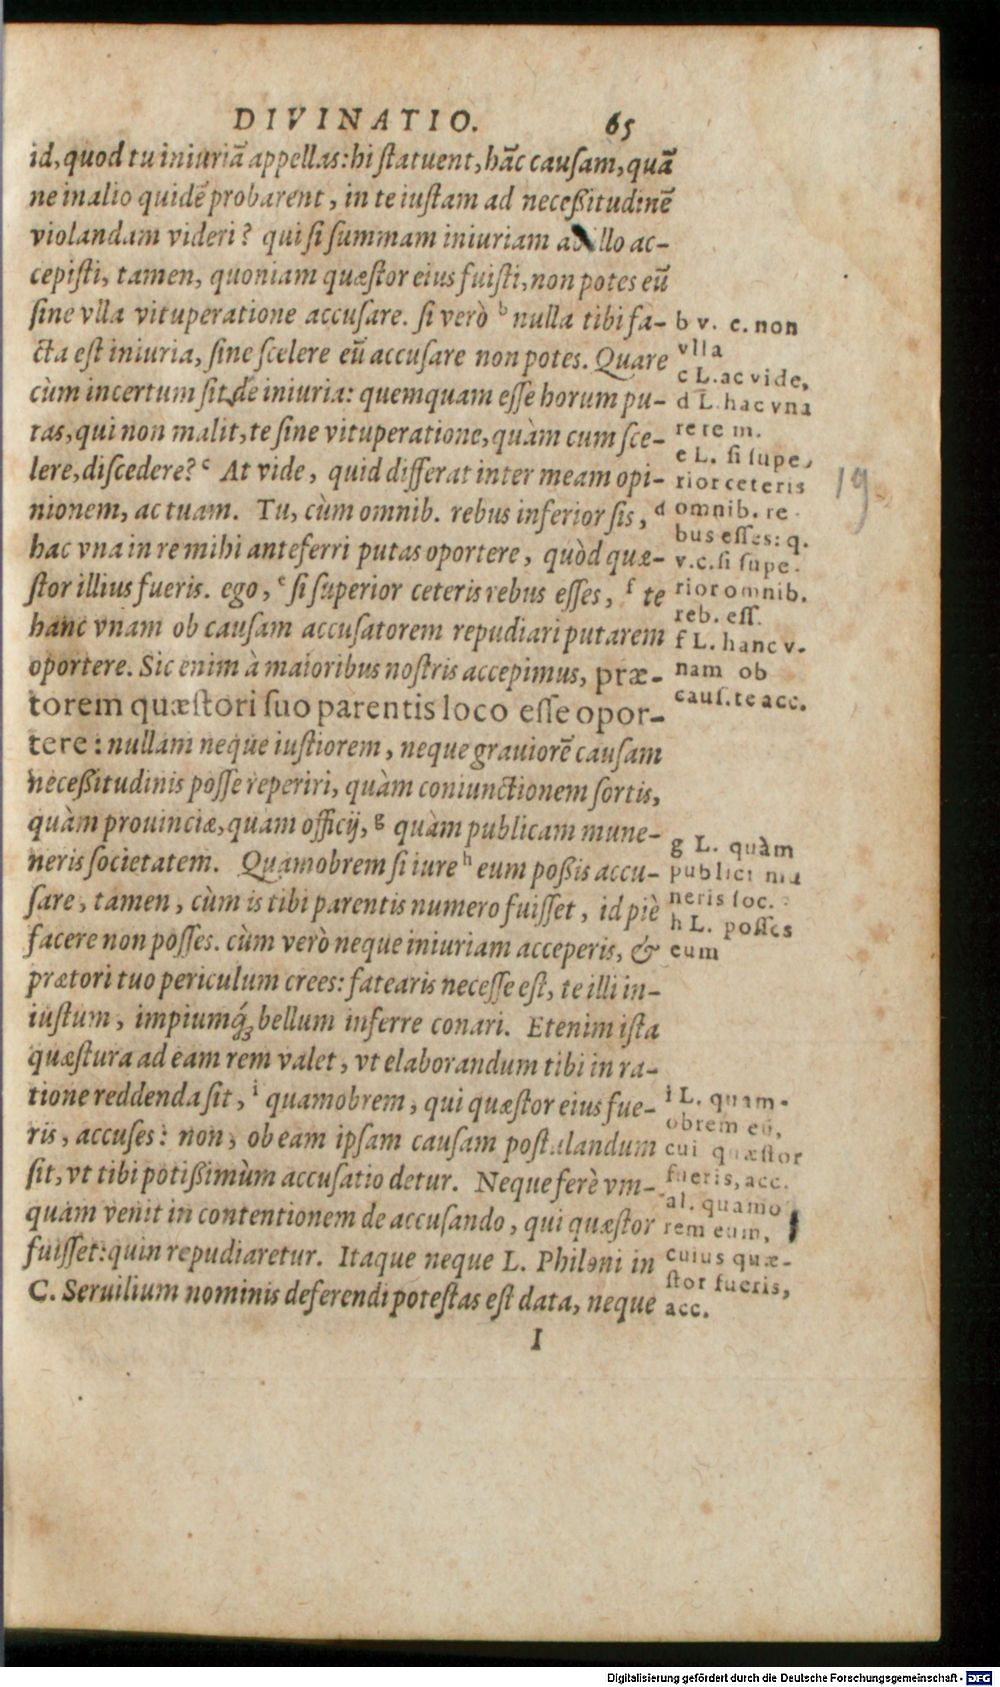 DIVINATIO. 65
id, quod tu iniuriā appellas: hi statuent, hāc causam, quā
ne in alio quidē probarent, in te iustam ad neceßitudinē
violandam videri? qui si summam iniuriam ab illo ac-
cepisti, tamen, quoniam quæstor eius fuisti, non potes eū
sine vlla vituperatione accusare. si verò b nulla tibi fa-
cta est iniuria, sine scelere eū accusare non potes. Quare
cùm incertum sit de iniuria: quemquam esse horum pu-
tas, qui non malit, te sine vituperatione, quàm cum sce-
lere, discedere? c At vide, quid differat inter meam opi-
nionem, ac tuam. Tu, cùm omnib. rebus inferior sis, d
hac vna in re mihi anteferri putas oportere, quòd quæ-
stor illius fueris. ego, e si superior ceteris rebus esses, f te
hanc vnam ob causam accusatorem repudiari putarem
oportere. Sic enim à maioribus nostris accepimus, præ-
torem quæstori suo parentis loco esse opor-
tere: nullam neque iustiorem, neque grauiorē causam
neceßitudinis posse reperiri, quàm coniunctionem sortis,
quàm prouinciæ, quam officij, g quàm publicam mune-
neris societatem. Quamobrem si iure h eum poßis accu-
sare, tamen, cùm is tibi parentis numero fuisset, id piè
facere non posses. cùm verò neque iniuriam acceperis, &
prætori tuo periculum crees: fatearis necesse est, te illi in-
iustum, impiumq́; bellum inferre conari. Etenim ista
quæstura ad eam rem valet, vt elaborandum tibi in ra-
tione reddenda sit, i quamobrem, qui quæstor eius fue-
ris, accuses: non, ob eam ipsam causam postulandum
sit, vt tibi potißimùm accusatio detur. Neque ferè vm-
quam venit in contentionem de accusando, qui quæstor
fuisset: quin repudiaretur. Itaque neque L. Philoni in
C. Seruilium nominis deferendi potestas est data, neque
I
b v. c. non
vlla
c L. ac vide,
d L. hac vna
re re m.
e L. si supe
rior ceteris
omnib. re
bus esses: q.
v. c. si supe
rior omnib.
reb. ess.
f L. hanc v-
nam ob
caus. te acc.
19
g L. quàm
publici mu
neris soc.
h L. posses
eum
i L. quam-
obrem eū,
cui quæstor
fueris, acc.
al. quamo
rem eum,
cuius quæ-
stor fueris,
acc.
Digitalisierung gefördert durch die Deutsche Forschungsgemeinschaft - DFG